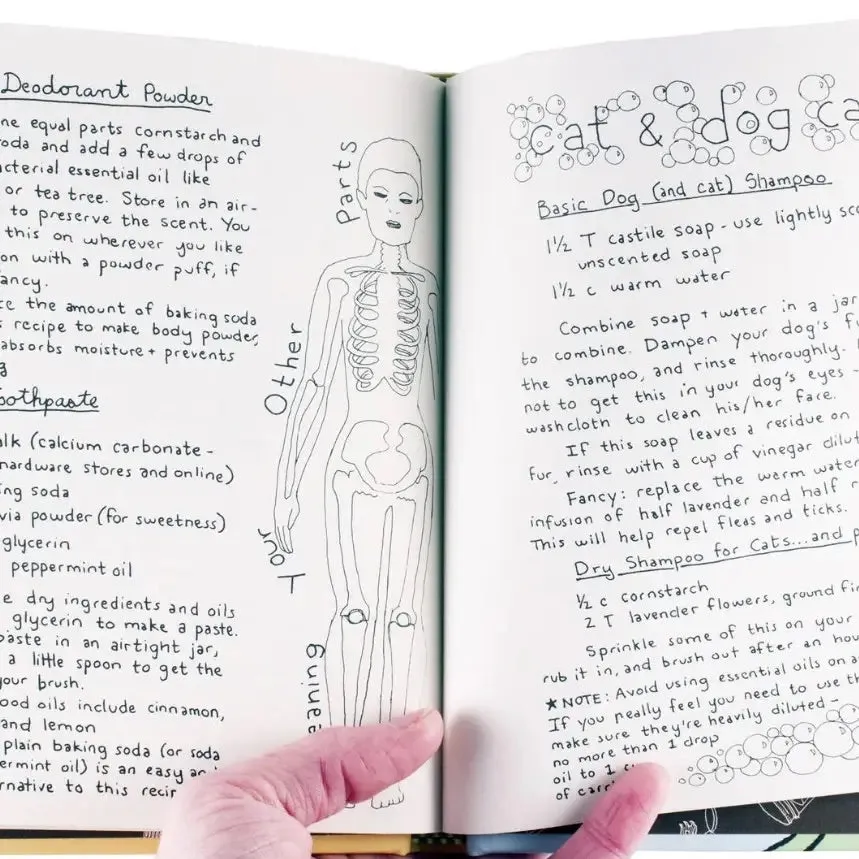 Deodorant Powder
ne equal parts cornstarch and
oda and add a few drops of
acterial essential oil like
or tea tree. Store in an air-
to preserve the scent. You
this on wherever you like
on with a powder puff, if
ancy.
ce the amount of baking soda
s recipe to make body powder,
absorbs moisture + prevents
g
oothpaste
alk (calcium carbonate -
hardware stores and online)
ng soda
via powder (for sweetness)
glycerin
peppermint oil
e dry ingredients and oils
glycerin to make a paste.
paste in an airtight jar,
a little spoon to get the
your brush.
ood oils include cinnamon,
and lemon
plain baking soda (or soda
ermint oil) is an easy
rnative to this recip
aning
Your
Other
Parts
cat & dog ca
Basic Dog (and cat) Shampoo
1½ T castile soap - use lightly sce
unscented soap
1½ c warm water
Combine soap + water in a jar
to combine. Dampen your dog's fu
the shampoo, and rinse thoroughly.
not to get this in your dog's eyes -
washcloth to clean his/her face.
If this soap leaves a residue on
fur, rinse with a cup of vinegar dilut
Fancy: replace the warm water
infusion of half lavender and half r
This will help repel fleas and ticks.
Dry Shampoo for Cats...and p
½ c cornstarch
2 T lavender flowers, ground fi
Sprinkle some of this on your
rub it in, and brush out after an hou
★ NOTE: Avoid using essential oils on a
If you really feel you need to use th
make sure they're heavily diluted -
no more than 1 drop
oil to 1 c
of carri